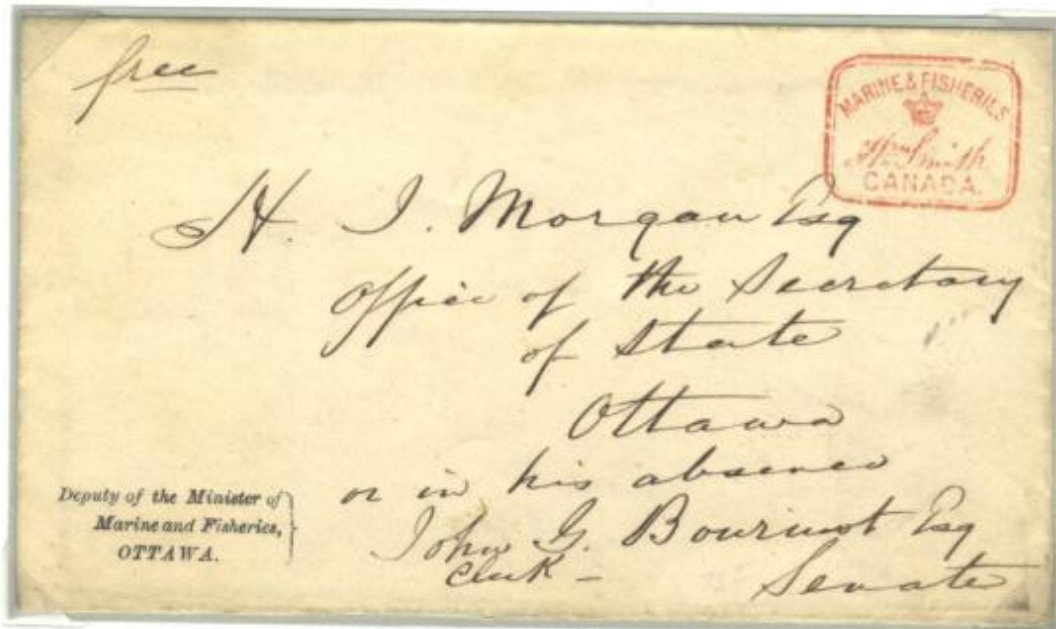 free
MARINE & FISHERIES
Wm Smith
CANADA.
H. J. Morgan Esq
Office of the Secretary
of State
Ottawa
or in his absence
John G. Bourinot Esq
Clerk - Senate
Deputy of the Minister of
Marine and Fisheries,
OTTAWA.